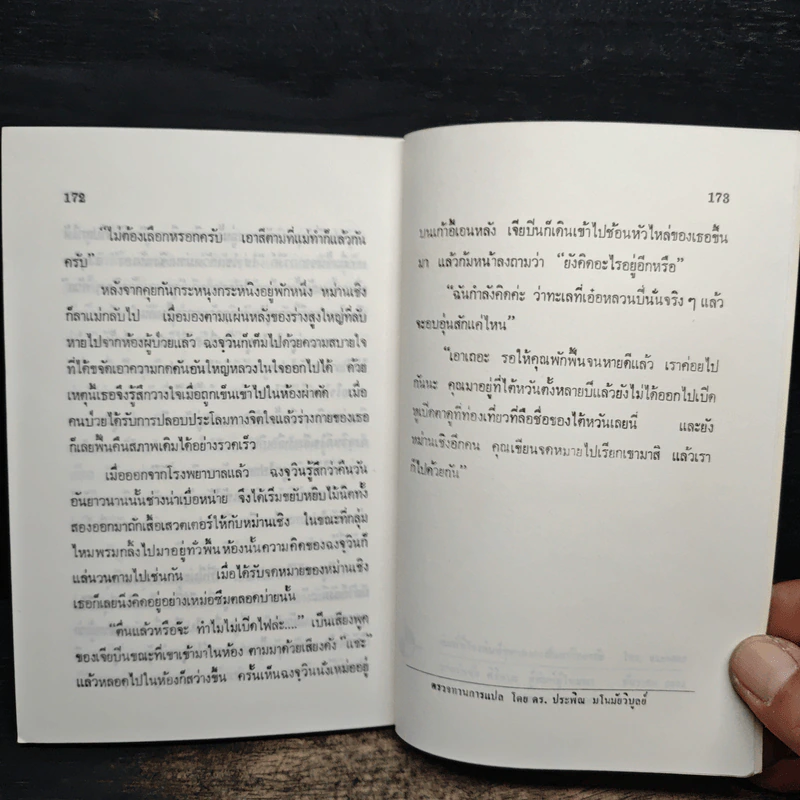 172
"ไม่ต้องเลือกหรอกครับ เอาสีตามที่แม่ทำก็แล้วกัน
ครับ"
หลังจากคุยกันกระหนุงกระหนิงอยู่พักหนึ่ง หม่านเชิง
ก็ลาแม่กลับไป เมื่อมองตามแผ่นหลังของร่างสูงใหญ่ที่ลับ
หายไปจากห้องผู้ป่วยแล้ว ฉงจุวินก็เต็มไปด้วยความสบายใจ
ที่ได้ขจัดเอาความกดดันอันใหญ่หลวงในใจออกไปได้ ด้วย
เหตุนี้เธอจึงรู้สึกวางใจเมื่อถูกเข็นเข้าไปในห้องผ่าตัด เมื่อ
คนป่วยได้รับการปลอบประโลมทางจิตใจแล้วร่างกายของเธอ
ก็เลยฟื้นคืนสภาพเดิมได้อย่างรวดเร็ว
เมื่อออกจากโรงพยาบาลแล้ว ฉงจุวินรู้สึกว่าคืนวัน
อันยาวนานนั้นช่างน่าเบื่อหน่าย จึงได้เริ่มขยับหยิบไม้นิตทั้ง
สองออกมาถักเสื้อเสวตเตอร์ให้กับหม่านเชิง ในขณะที่กลุ่ม
ไหมพรมกลิ้งไปมาอยู่ทั่วพื้นห้องนั้นความคิดของฉงจุวินก็
แล่นวนตามไปเช่นกัน เมื่อได้รับจดหมายของหม่านเชิง
เธอก็เลยนึ่งคิดอยู่อย่างเหม่อซึมตลอดบ่ายนั้น
"ตื่นแล้วหรือจ๊ะ ทำไมไม่เปิดไฟล่ะ...." เป็นเสียงพูด
ของเจียปินขณะที่เขาเข้ามาในห้อง ตามมาด้วยเสียงดัง "แชะ"
แล้วหลอดไปในห้องก็สว่างขึ้น ครั้นเห็นฉงจุวินนั่งเหม่ออยู่
173
บนเก้าอี้เอนหลัง เจียปินก็เดินเข้าไปช้อนหัวไหล่ของเธอขึ้น
มา แล้วก้มหน้าลงถามว่า "ยังคิดอะไรอยู่อีกหรือ"
"ฉันกำลังคิดค่ะ ว่าทะเลที่เอ๋อหลวนปี้นั่นจริง ๆ แล้ว
จะอบอุ่นสักแค่ไหน"
"เอาเถอะ รอให้คุณพักฟื้นจนหายดีแล้ว เราค่อยไป
กันนะ คุณมาอยู่ที่ไต้หวันตั้งหลายปีแล้วยังไม่ได้ออกไปเปิด
หูเปิดตาดูที่ท่องเที่ยวที่ลือชื่อของไต้หวันเลยนี่ และยัง
หม่านเชิงอีกคน คุณเขียนจดหมายไปเรียกเขามาสิ แล้วเรา
ก็ไปด้วยกัน"
ตรวจทานการแปล โดย ดร. ประพิณ มโนมัยวิบูลย์